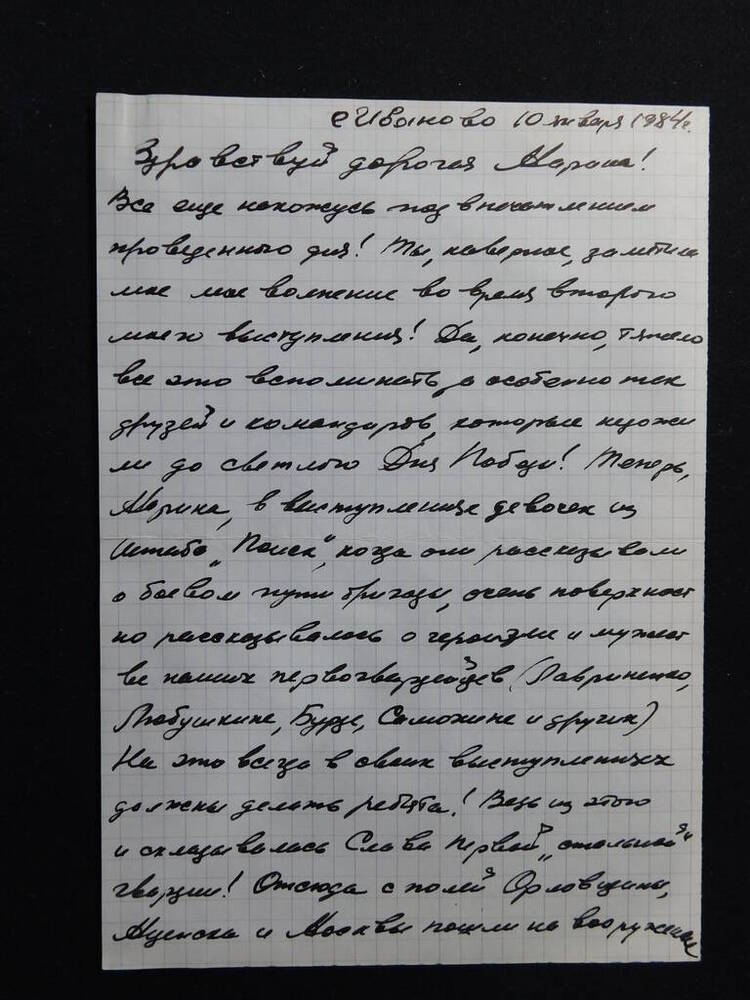 с Иваново 10 января 1984г.
Здравствуй дорогая Марина!
Все еще нахожусь под впечатлением
проведенного дня! Ты, наверное, заметила
мое волнение во время второго
моего выступления! Да, конечно, тяжело
все это вспоминать, а особенно тех
друзей и командиров, которые недожи
ли до светлого Дня Победы! Теперь,
Марина, в выступлениях девочек из
штаба „Поиск", когда они рассказывали
о боевом пути бригады, очень поверхност
но рассказывалось о героизме и мужест
ве наших первогвардейцев (Лавриненко,
Любушкине, Бурде, Самохине и других)
На это всегда в своих выступлениях
должны делать ребята! Ведь из этого
и складывалась Слава первой „стальной"
гвардии! Отсюда с полей Орловщины,
Мценска и Москвы пошли на вооружение